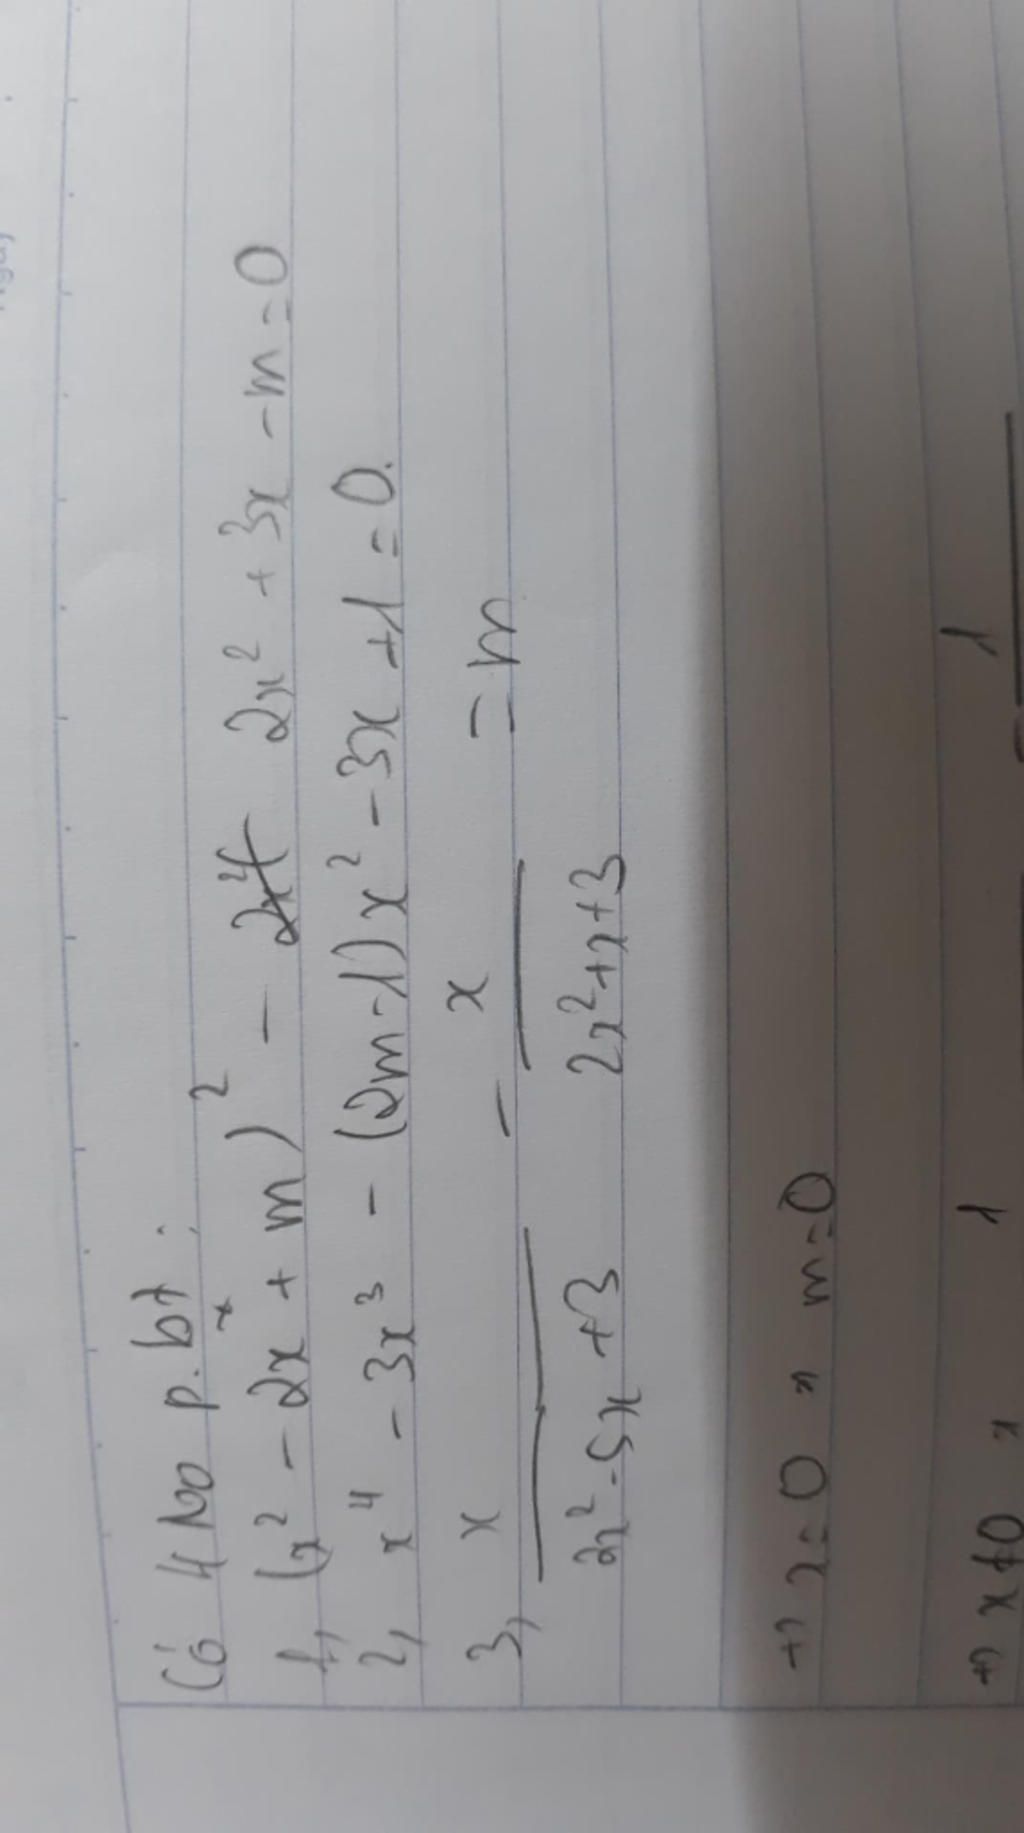 Có 4 No p.bt:
1, (x² - 2x + m)² - 2x² + 3x - m = 0
2, x⁴ - 3x³ - (2m-1)x² - 3x + 1 = 0.
3, x/(2x² - 5x + 3) - x/(2x² + x + 3) = m
+) x = 0 " m = 0
+) x ≠ 0 " 1 1